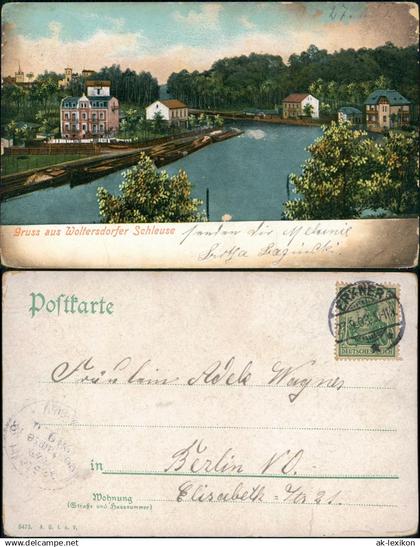 27.
Gruss aus Woltersdorfer Schleuse
senden Dir Melanie
Postkarte
ERKNER
DEUTSCHES REICH
Fräulein Adele Wagner
in Berlin NO.
Wohnung
(Straße und Hausnummer)
Elisabeth 21.
© ak-lexikon.de